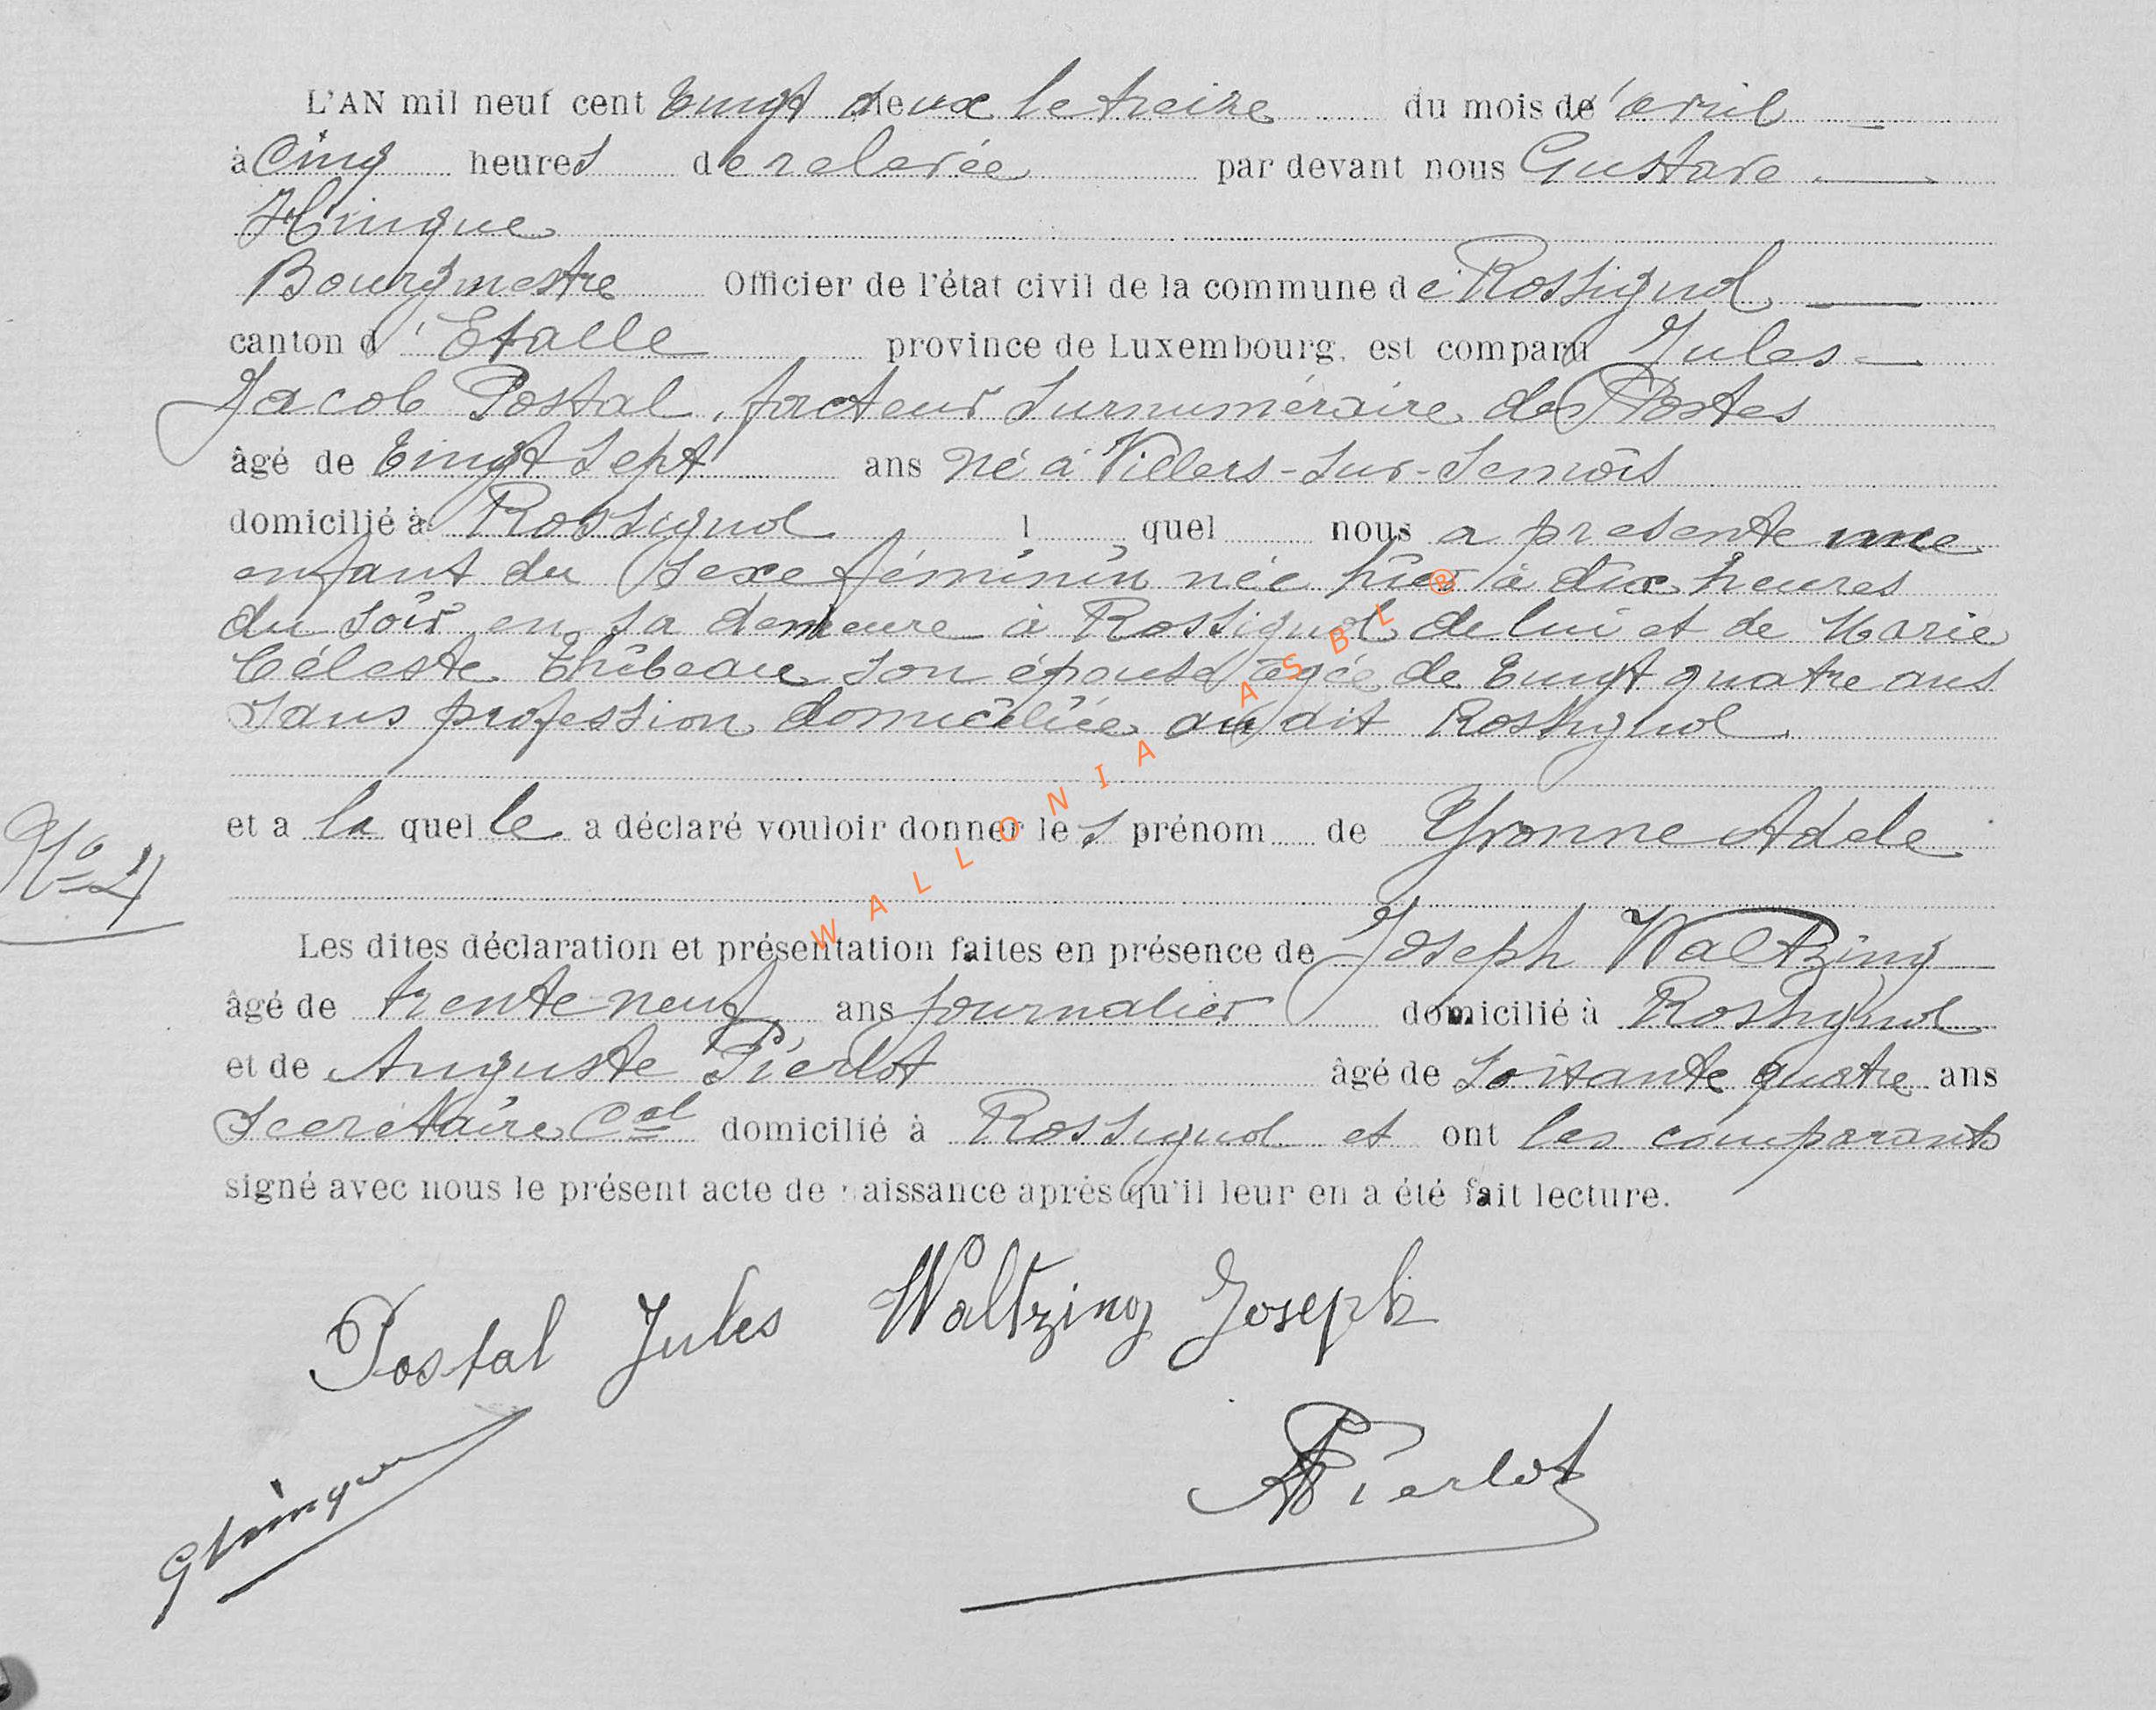 L'AN mil neuf cent vingt deux le treize du mois de d'avril
à Cinq heures de relevée par devant nous Gustave
Hinque
Bourgmestre Officier de l'état civil de la commune de Rossignol
canton d'Etalle province de Luxembourg, est comparu Jules
Jacob Postal, facteur surnuméraire des Postes
âgé de vingt sept ans né à Villers-sur-Semois
domicilié à Rossignol l quel nous a présenté une
enfant du sexe féminin née hier à dix heures
du soir en sa demeure à Rossignol de lui et de Marie
Céleste Thibeau son épouse âgée de vingt quatre ans
sans profession domiciliée au dit Rossignol.
et a la quel le a déclaré vouloir donner les prénom de Yvonne Adele
No 4
Les dites déclaration et présentation faites en présence de Joseph Waltzing
âgé de trente-neuf ans journalier domicilié à Rossignol
et de Auguste Pierlot âgé de soixante quatre ans
Secrétaire Cal domicilié à Rossignol et ont les comparants
signé avec nous le présent acte de naissance après qu'il leur en a été fait lecture.
Postal Jules Waltzing Joseph
GHinque
APierlot
WALLONIA ASBL ®